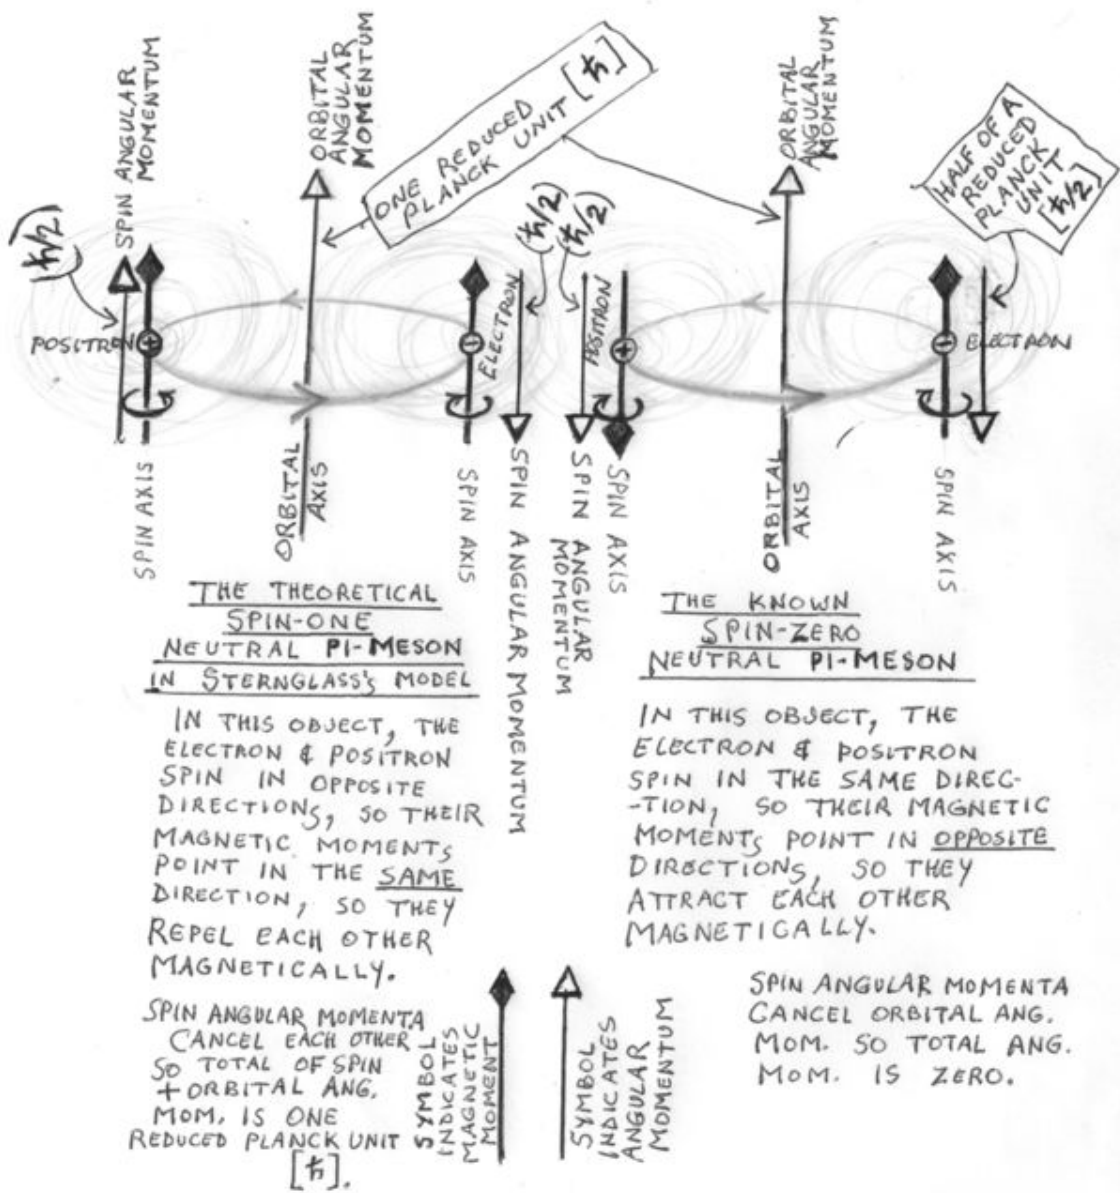 SPIN ANGULAR
MOMENTUM
ORBITAL
ANGULAR
MOMENTUM
ONE REDUCED
PLANCK UNIT [ħ]
ORBITAL
ANGULAR
MOMENTUM
HALF OF A
REDUCED
PLANCK
UNIT
[ħ/2]
(ħ/2)
(ħ/2)
(ħ/2)
POSITRON
+
-
ELECTRON
POSITRON
+
-
ELECTRON
SPIN AXIS
ORBITAL
AXIS
SPIN AXIS
SPIN ANGULAR MOMENTUM
SPIN ANGULAR
MOMENTUM
SPIN AXIS
ORBITAL
AXIS
SPIN AXIS
THE THEORETICAL
SPIN-ONE
NEUTRAL PI-MESON
IN STERNGLASS'S MODEL
IN THIS OBJECT, THE
ELECTRON & POSITRON
SPIN IN OPPOSITE
DIRECTIONS, SO THEIR
MAGNETIC MOMENTS
POINT IN THE SAME
DIRECTION, SO THEY
REPEL EACH OTHER
MAGNETICALLY.
SPIN ANGULAR MOMENTA
CANCEL EACH OTHER
SO TOTAL OF SPIN
+ ORBITAL ANG.
MOM. IS ONE
REDUCED PLANCK UNIT
[ħ].
THE KNOWN
SPIN-ZERO
NEUTRAL PI-MESON
IN THIS OBJECT, THE
ELECTRON & POSITRON
SPIN IN THE SAME DIREC-
-TION, SO THEIR MAGNETIC
MOMENTS POINT IN OPPOSITE
DIRECTIONS, SO THEY
ATTRACT EACH OTHER
MAGNETICALLY.
SPIN ANGULAR MOMENTA
CANCEL ORBITAL ANG.
MOM. SO TOTAL ANG.
MOM. IS ZERO.
SYMBOL
INDICATES
MAGNETIC
MOMENT
SYMBOL
INDICATES
ANGULAR
MOMENTUM